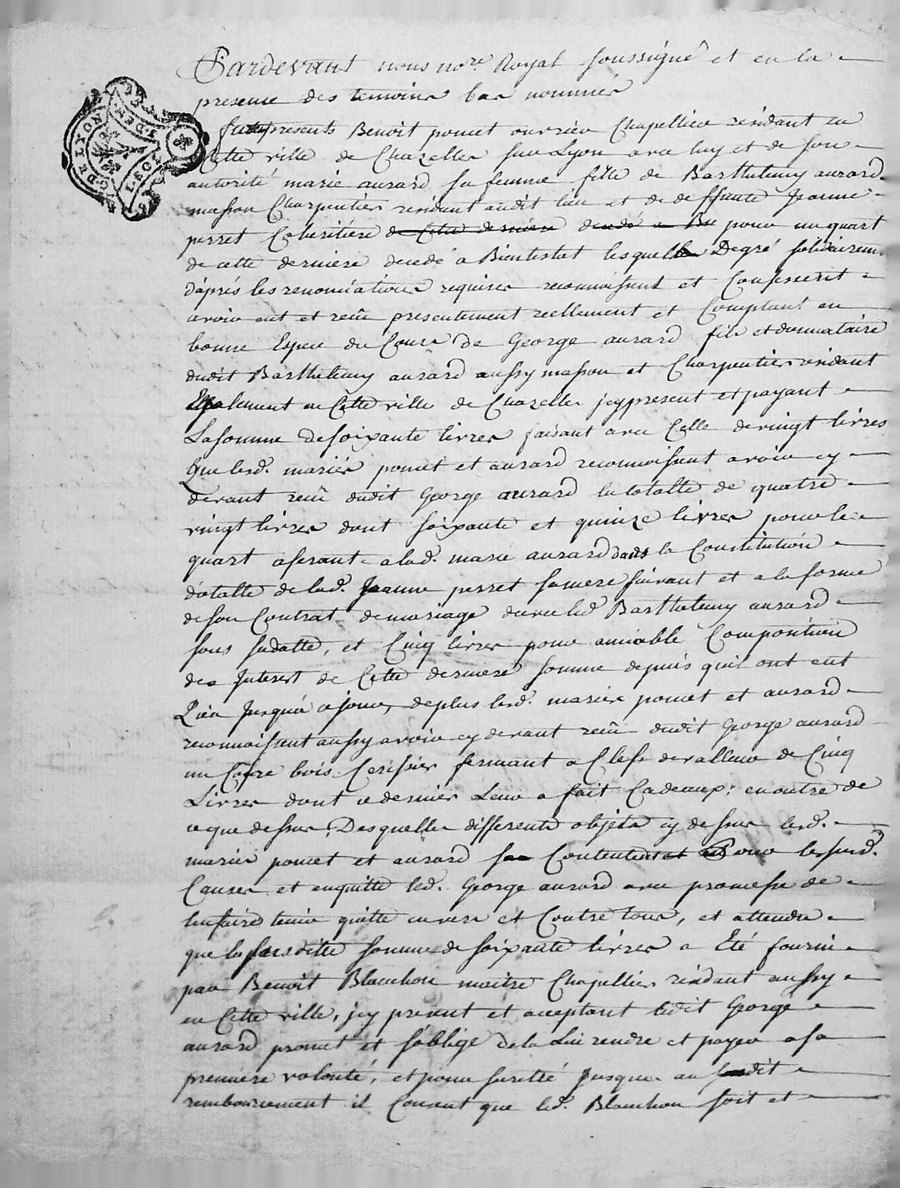 Pardevant nous no.re Royal soussigné et en la
presence des temoins bas nommés
furent presents Benoit pomet ouvrier Chapellier résidant en
Cette ville de Chazelles sur Lyon avec luy et de son
autorité marie aurard sa femme fille de Barthelemy aurard
masson Charpentier residant audit lieu et de deffunte Jeanne
perret Coheritiere de Cette derniere decedé a pour un quart
de cette derniere decedé a Bientestat lesquels Degré solidairem.
d'après les renonciations requises reconnoissent et Confessent
avoir eut et recû presentement reellement et Comptant en
bonne Espece du Cours de George aurard fils et donnataire
dudit Barthelemy aurard aussy masson et Charpentier residant
Egalement en Cette ville de Chazelles jcy present et payant
La somme de soixante livres faisant avec Celle de vingt livres
Que lesd. mariés pomet et aurard reconnoissent avoir cy
devant recû dudit George aurard la totalle de quatre
vingt livres dont soixante et quinze livres pour le
quart aferant a lad. marie aurard dans la Constitution
dotalle de lad. Jeanne perret sa mere suivant et a la forme
de son Contrat de mariage avec led. Barthelemy aurard
sous sa datte, et Cinq livres pour amiable Composition
des Interest de Cette derniere somme depuis quil ont eut
Lieu Jusqu'a ce jour, de plus lesd. mariés pomet et aurard
reconnoissent aussy avoir cy devant recû dudit George aurard
un Cofre bois Cerisier fermant a Clefs de valleur de Cinq
Livres dont ce dernier Leur a fait Cadeaux, en outre de
ce que dessus, Desquelles differents objets cy dessus lesd.
mariés pomet et aurard se Contentent pour les susd.
Causes et enquitte led. George aurard avec promesse de
len faire tenir quitte envers et Contre tous, et attendu
que la susditte somme de soixante livres a Eté fournie
par Benoit Blanchon maitre Chapellier résidant aussy
en Cette ville, jcy present et acceptant ledit George
aurard promet et s'oblige de la Lui rendre et payer a sa
premiere volonté, et pour sureté Jusque au dit
remboursement il Consent que led. Blanchon soit et